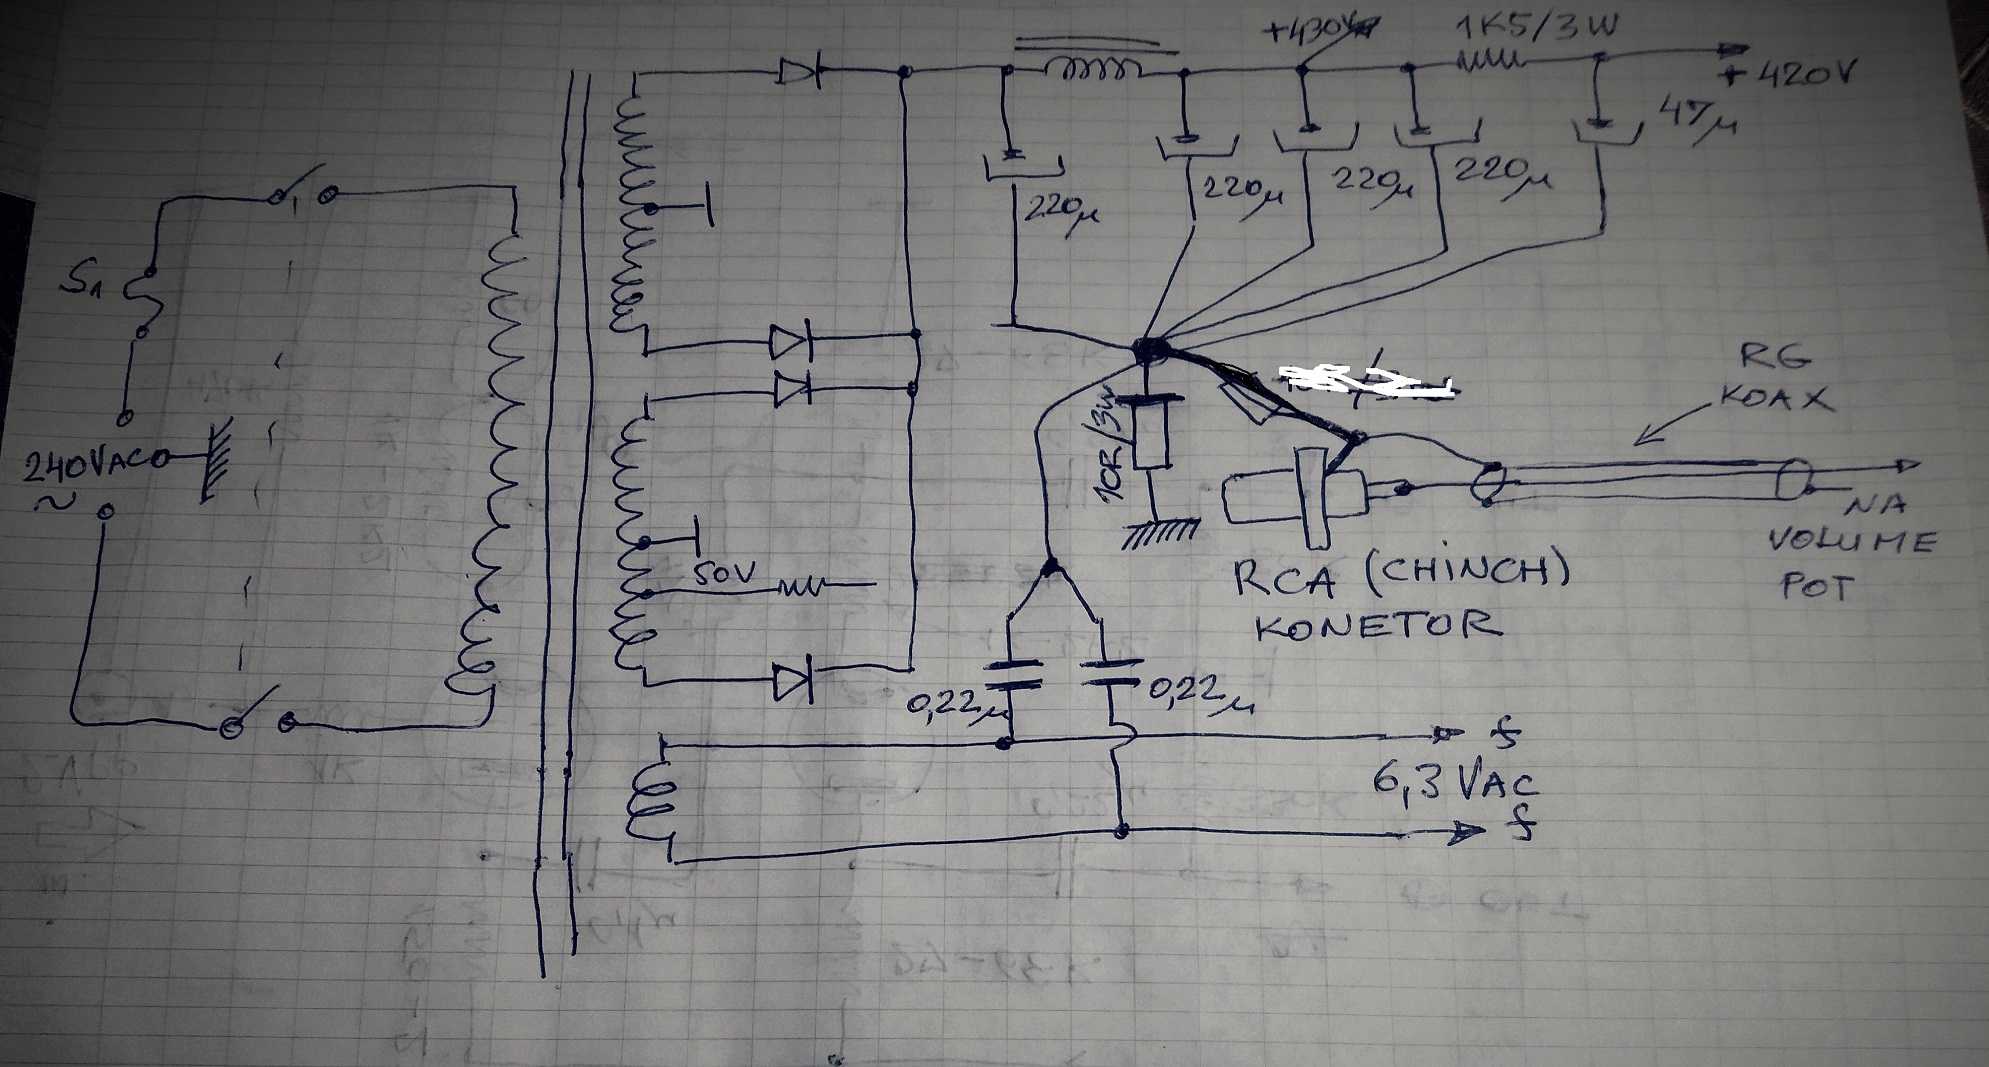 +430V
1K5/3W
+420V
47µ
220µ
220µ
220µ
220µ
S1
240VAC
~
10R/3W
RG
KOAX
NA
VOLUME
POT
RCA (CHINCH)
KONETOR
50V
0,22µ
0,22µ
f
6,3 VAC
f